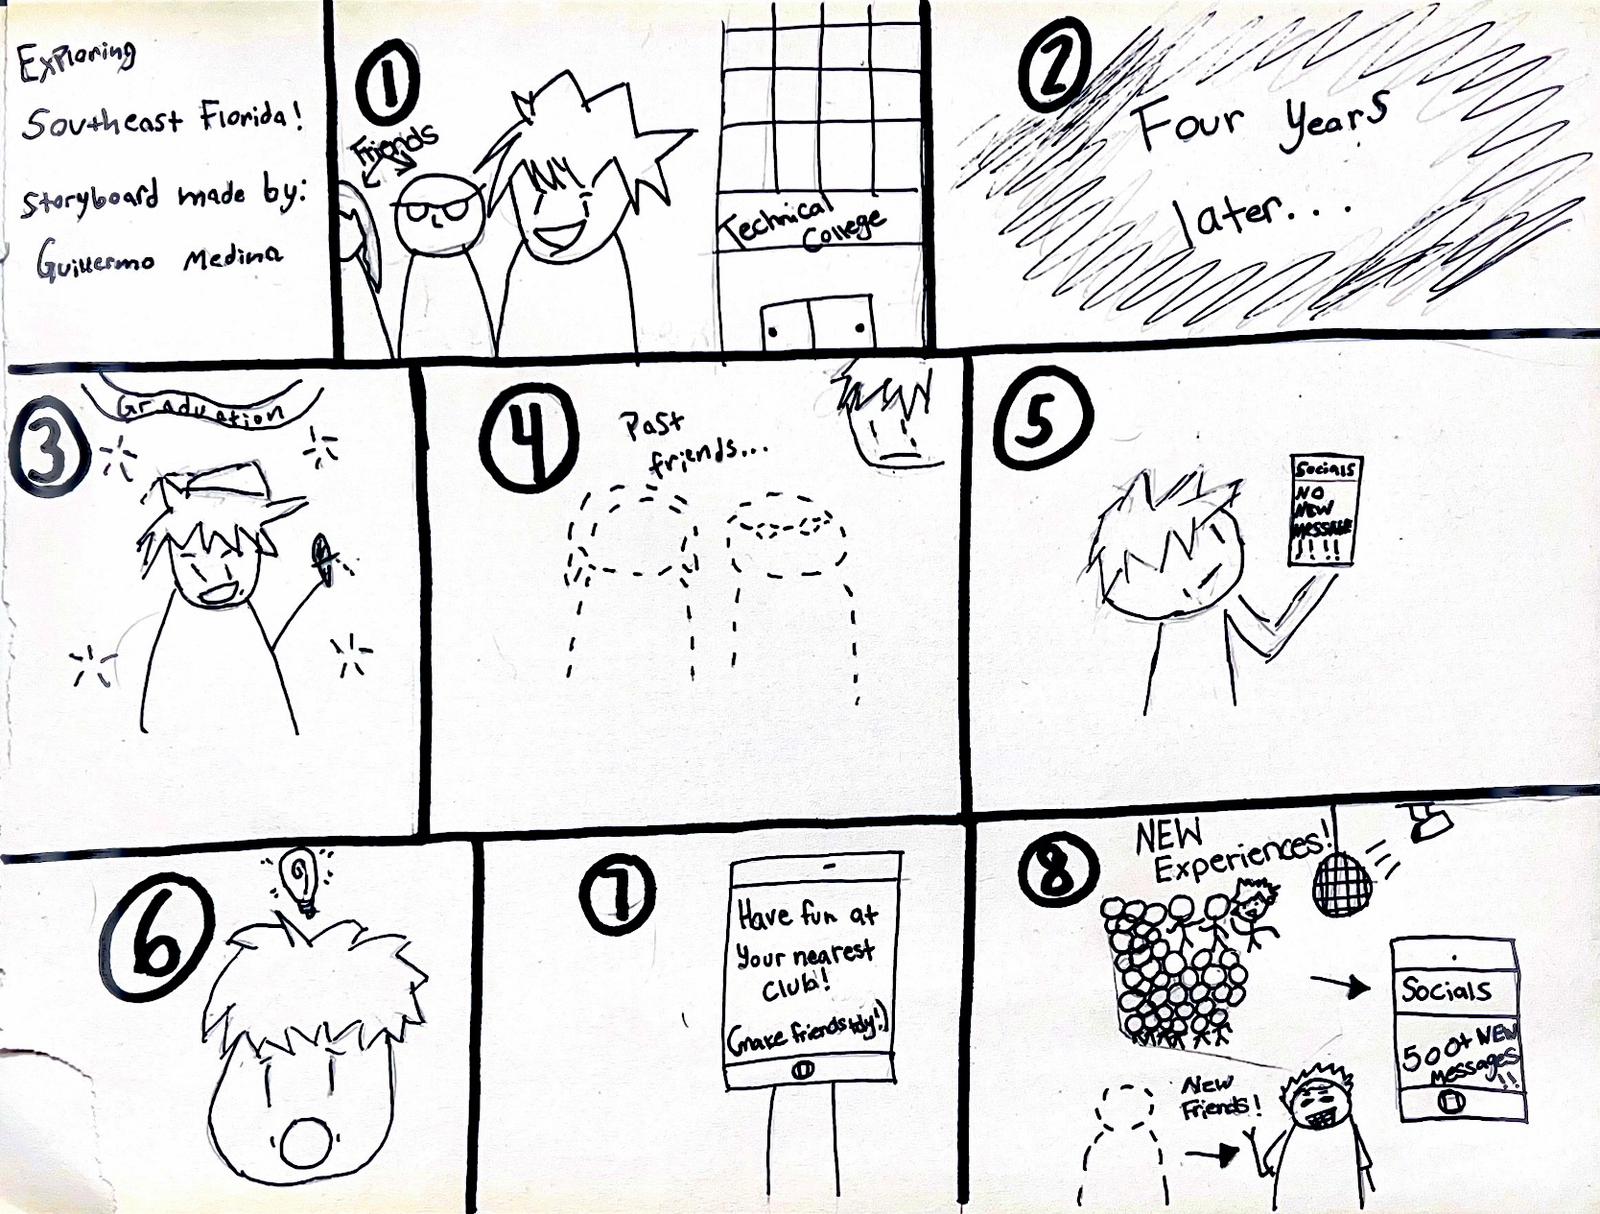 Exploring
Southeast Florida!
Storyboard made by:
Guillermo Medina
1
Friends
Technical
College
2
Four Years
later...
3
Graduation
4
Past
friends...
5
Socials
NO
NEW
MESSAGE
!!!!
6
7
Have fun at
Your nearest
Club!
(make friends tdy!)
8
NEW
Experiences!
Socials
500+ NEW
Messages
!!
New
Friends!